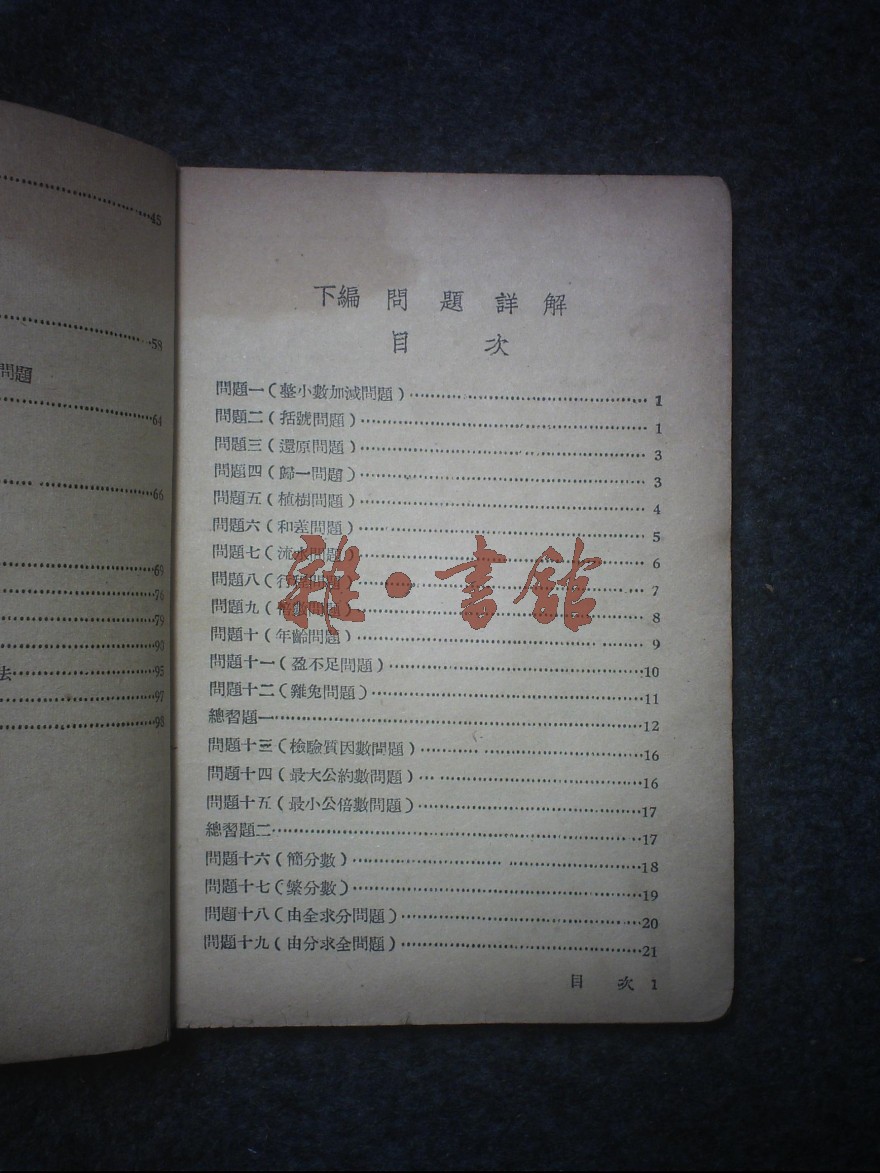 45
58
問題
64
66
69
76
79
90
法 95
97
98
下編 問題詳解
目 次
問題一(整小數加減問題) 1
問題二(括號問題) 1
問題三(還原問題) 3
問題四(歸一問題) 3
問題五(植樹問題) 4
問題六(和差問題) 5
問題七(流水問題) 6
問題八(行程問題) 7
問題九(倍數問題) 8
問題十(年齡問題) 9
問題十一(盈不足問題) 10
問題十二(雞兔問題) 11
總習題一 12
問題十三(檢驗質因數問題) 16
問題十四(最大公約數問題) 16
問題十五(最小公倍數問題) 17
總習題二 17
問題十六(簡分數) 18
問題十七(繁分數) 19
問題十八(由全求分問題) 20
問題十九(由分求全問題) 21
目 次 1
雜·書館